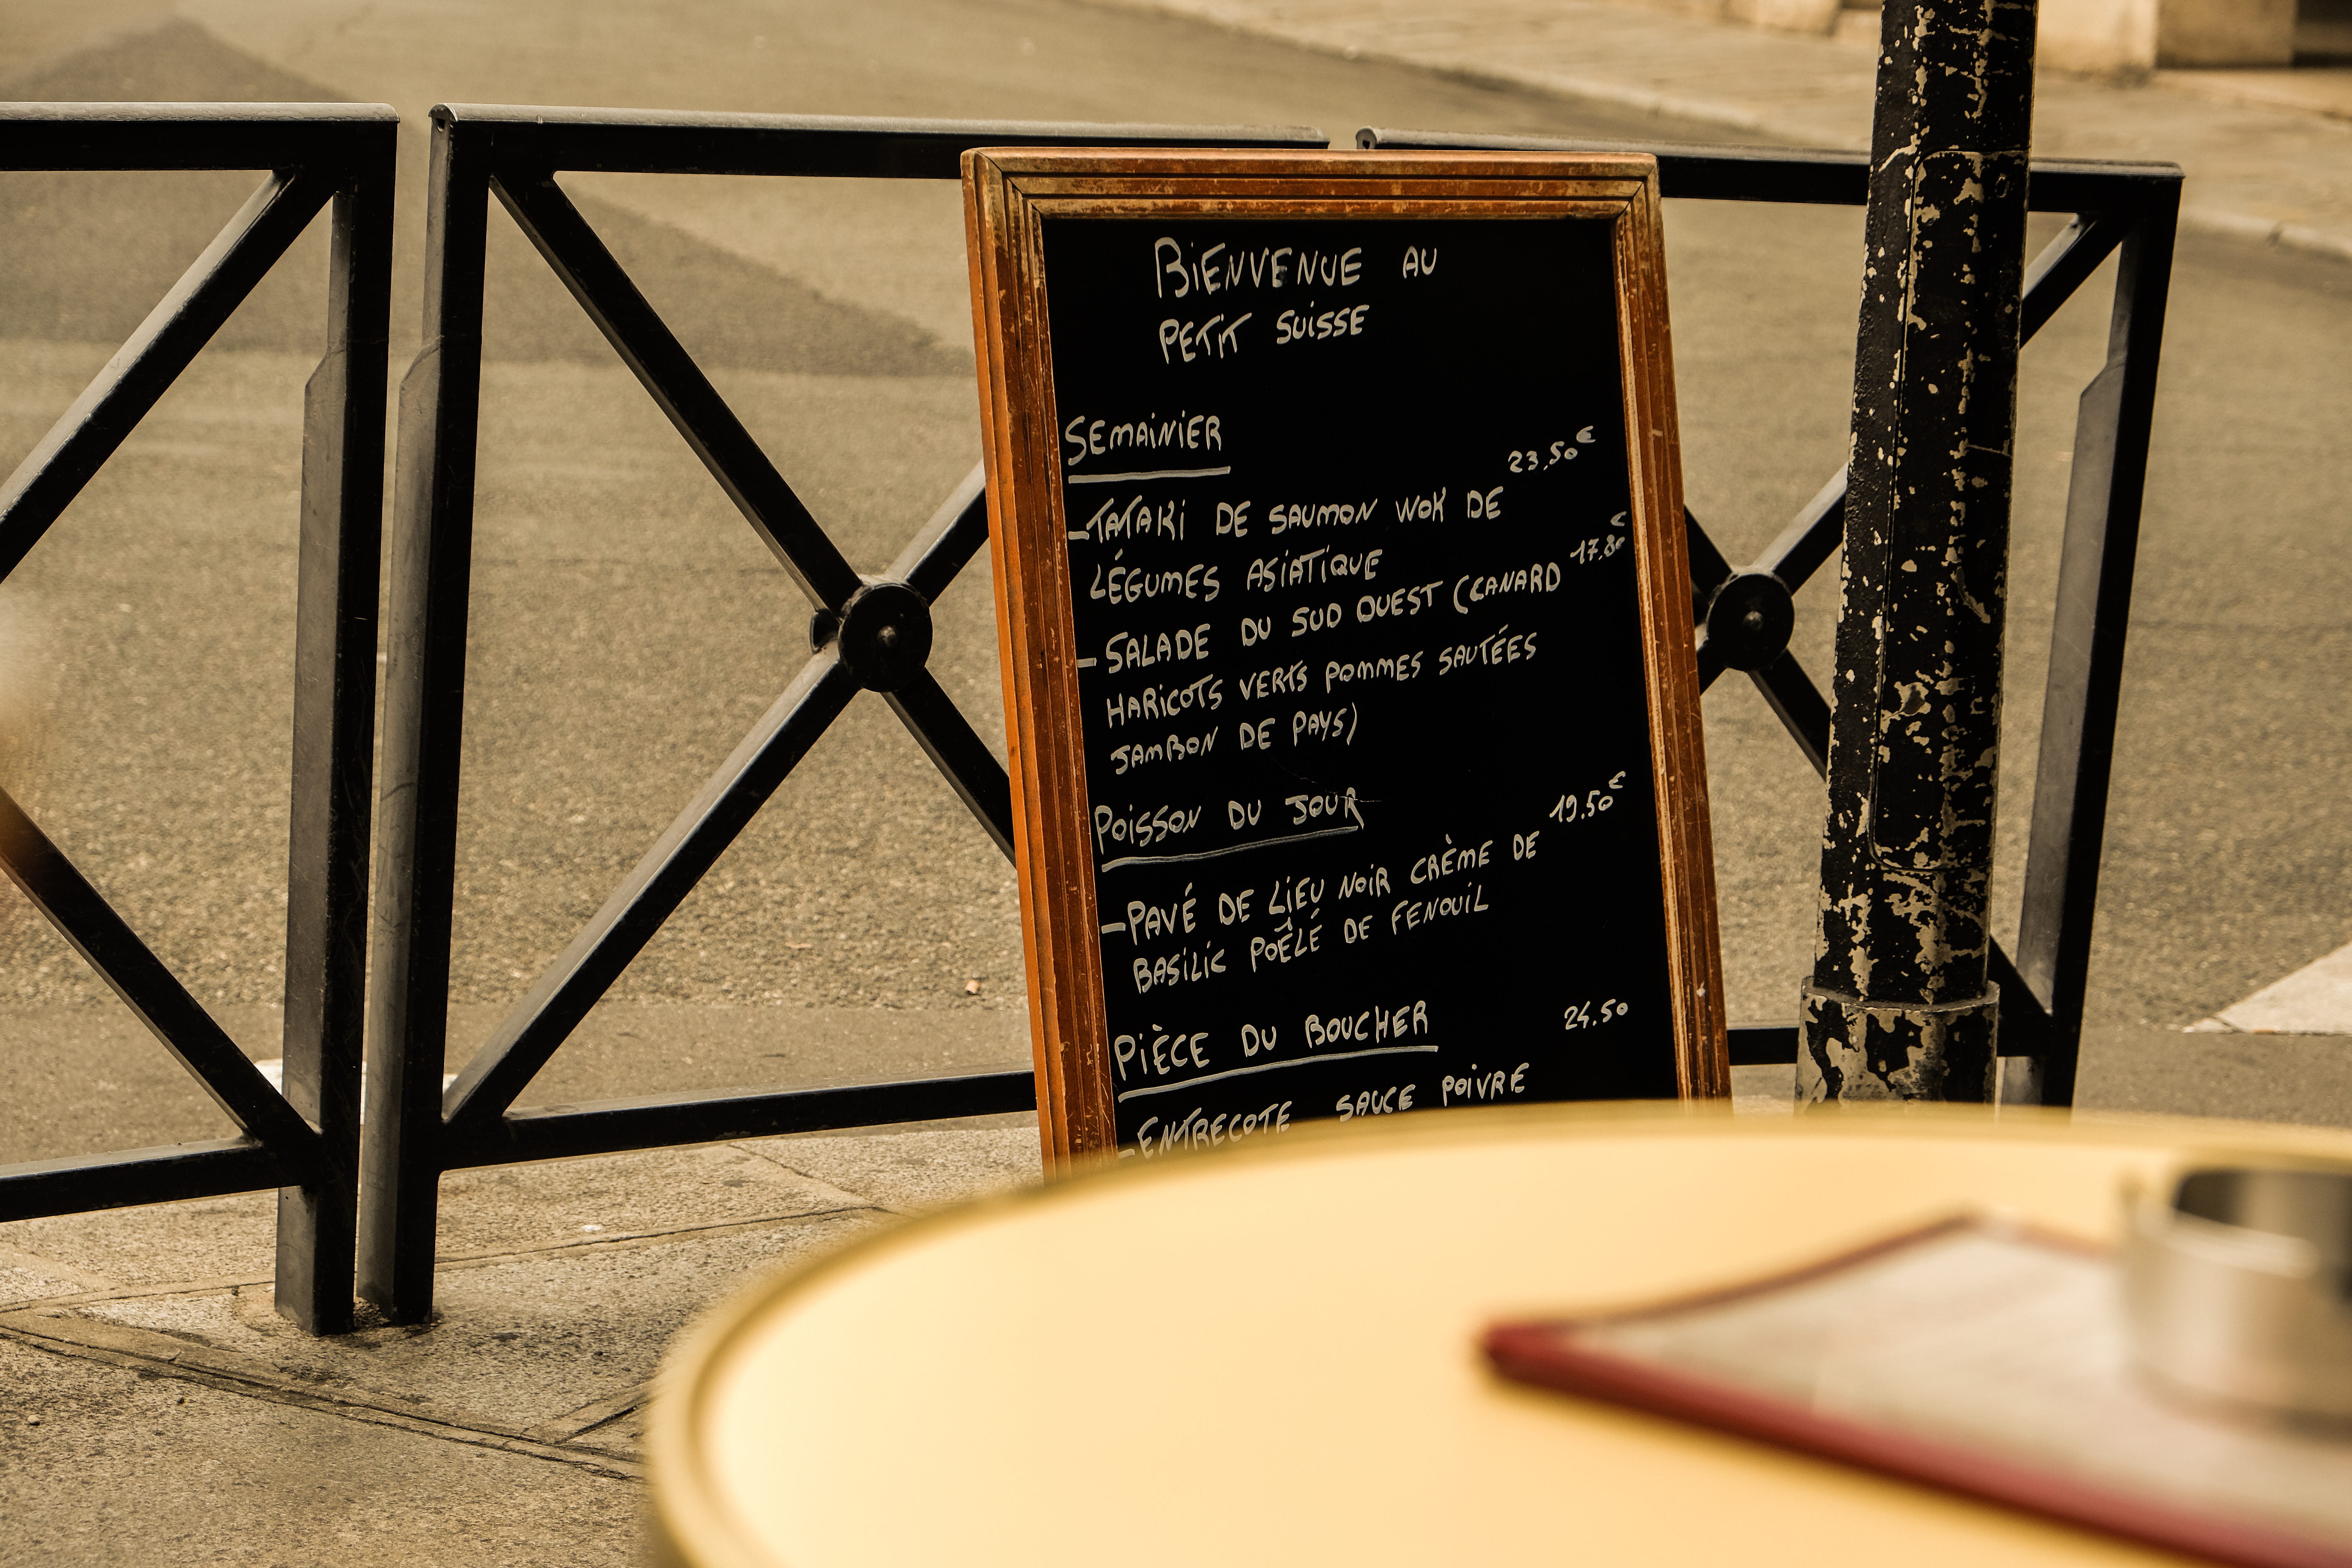 BIENVENUE AU
PETIT SUISSE
SEMAINIER
23,50€
-TATAKI DE SAUMON WOK DE
LÉGUMES ASIATIQUE
-SALADE DU SUD OUEST (CANARD 17.80€
HARICOTS VERTS POMMES SAUTÉES
JAMBON DE PAYS)
POISSON DU JOUR 19.50€
-PAVÉ DE LIEU NOIR CRÈME DE
BASILIC POÊLÉ DE FENOUIL
PIÈCE DU BOUCHER 24.50
-ENTRECOTE SAUCE POIVRE